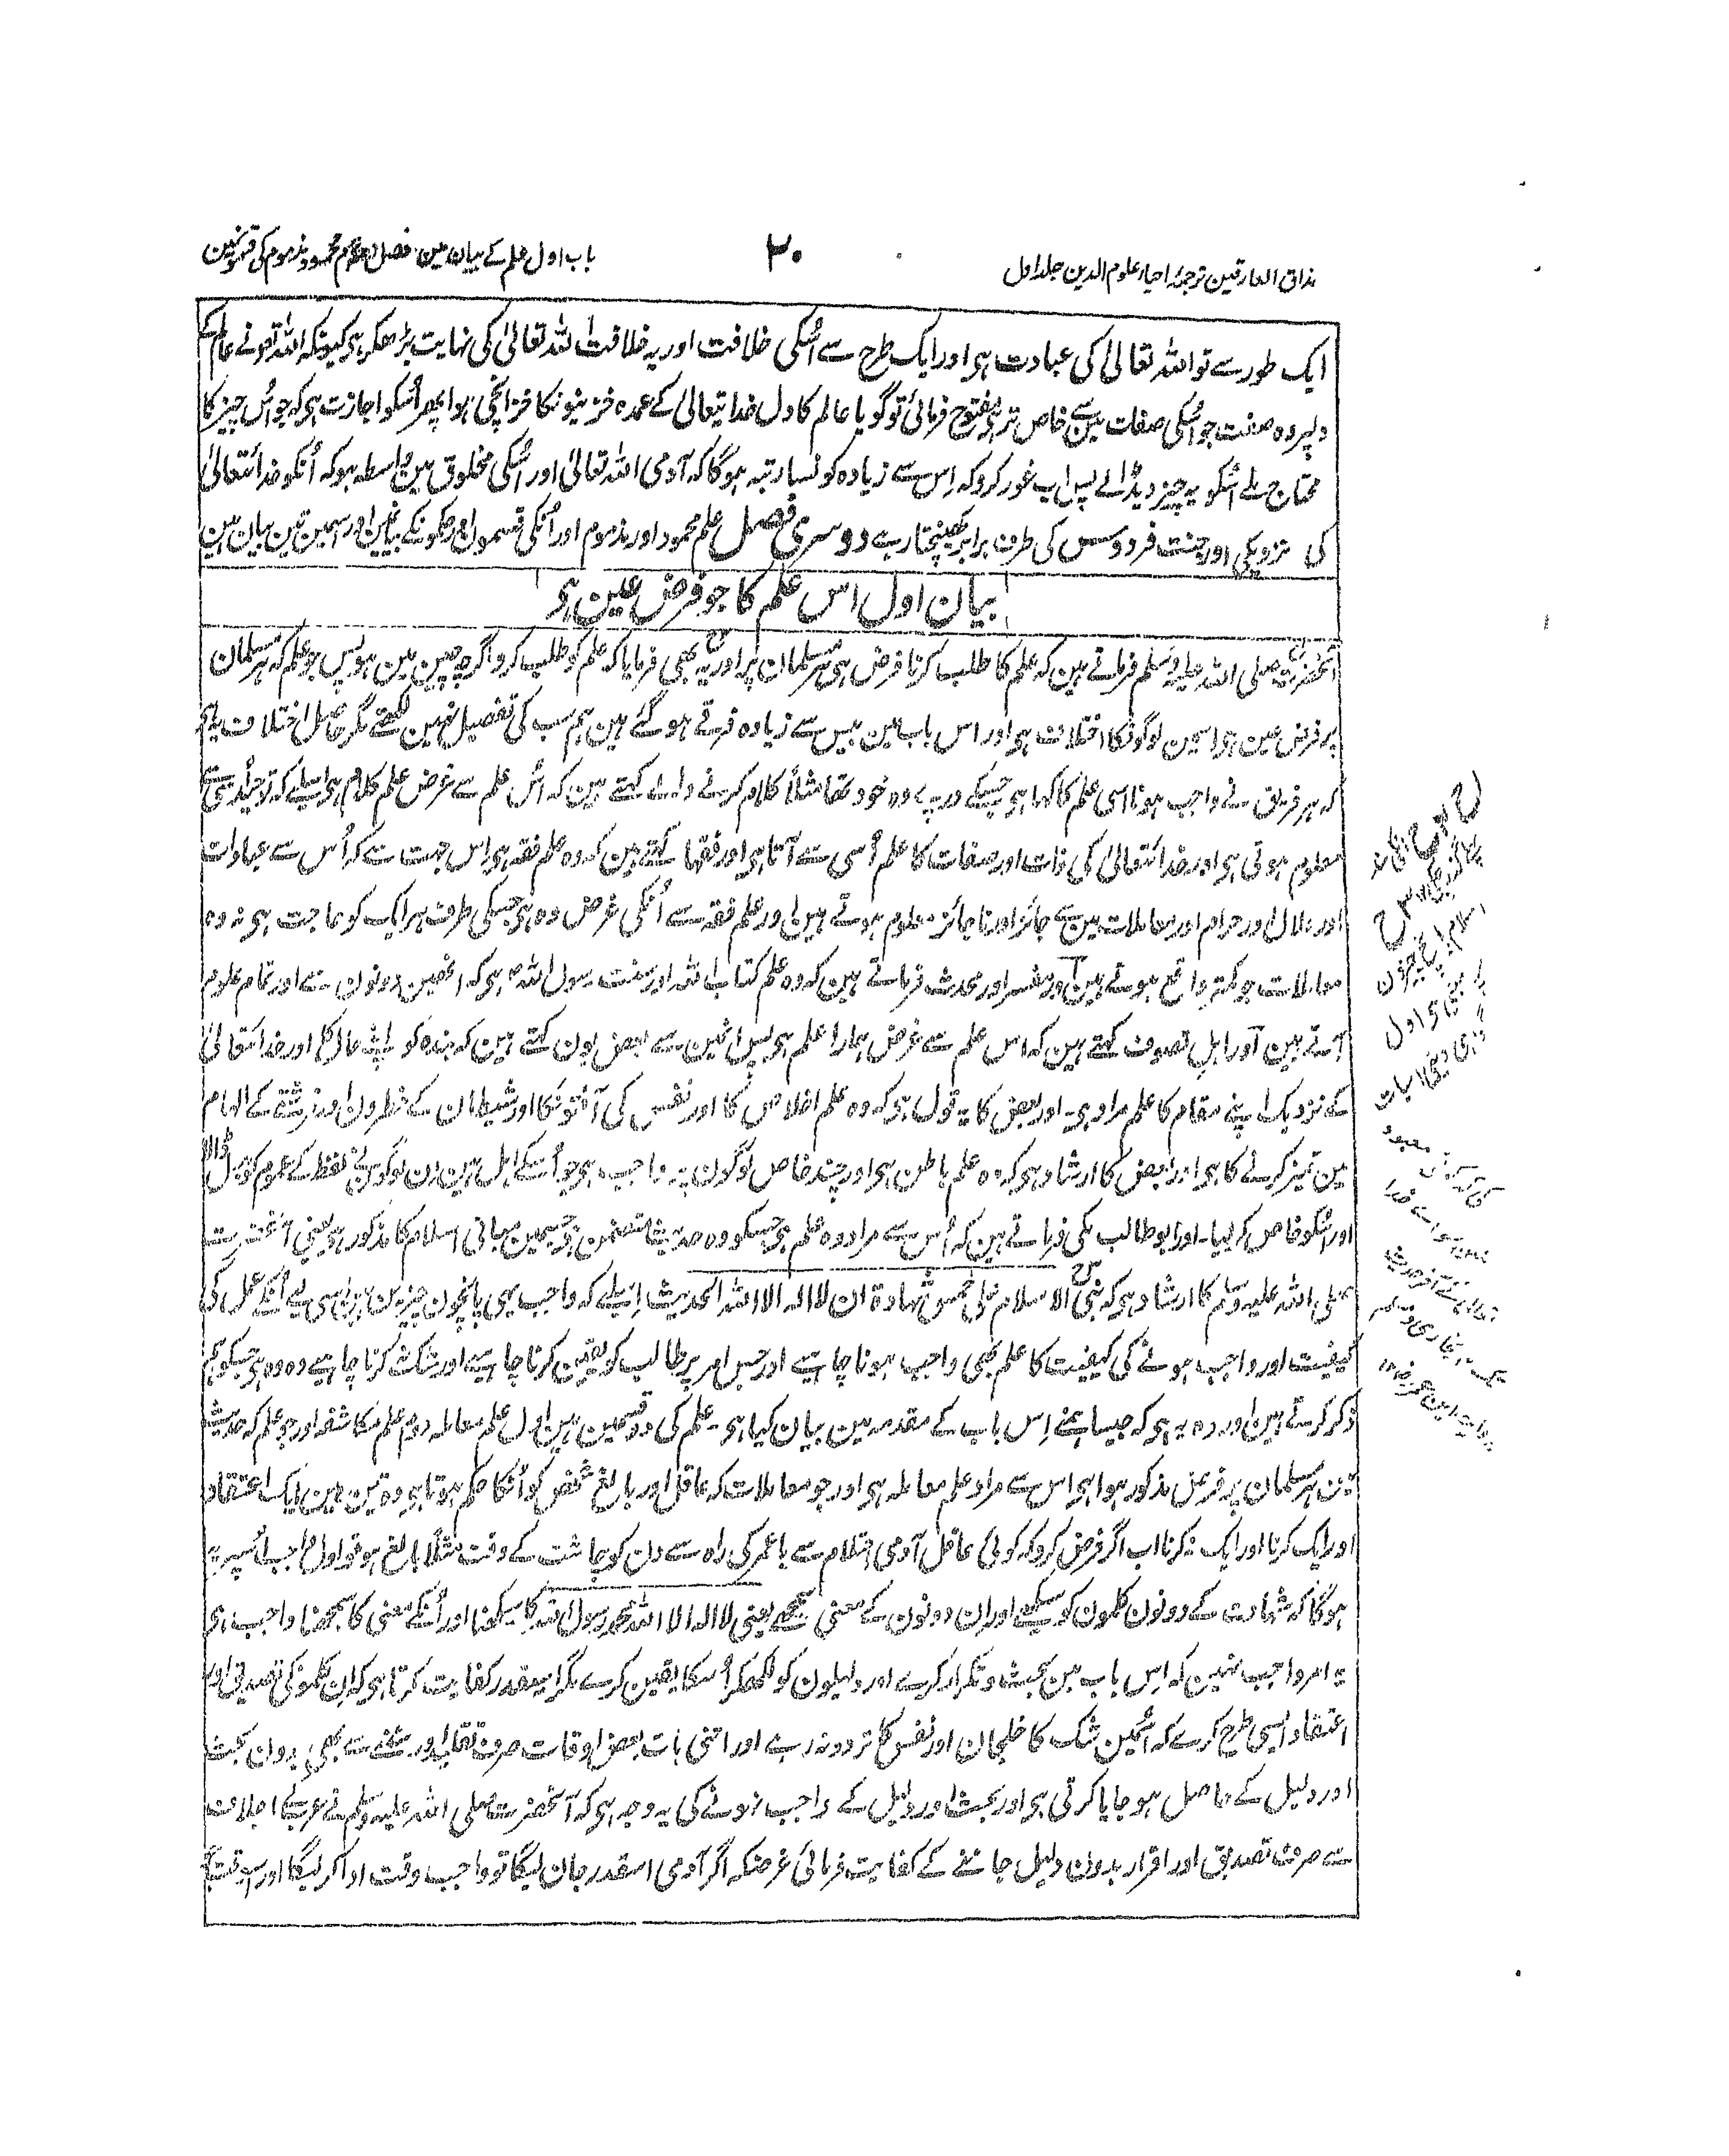 مذاق العارفین ترجمۂ احیاء علوم الدین جلد اول
۳۰
باب اول علم کے بیان مین فصل دوم علم محمود و مذموم کی قسمونمین
ایک طور سے تو اللہ تعالیٰ کی عبادت ہی اور ایک طرح سے اُسکی خلافت اور یہ خلافت اللہ تعالیٰ کی نہایت بڑھکر ہی کیونکہ اللہ تعالی نے عالم کے
دلپر وہ صفت جو اُسکی صفات مین سے خاص تر ہی مفتوح فرمائی تو گویا عالم کا دل خدا یتعالیٰ کے عمدہ خزینونکا خزانچی ہوا پھر اُسکو اجازت ہی کہ جو اُس چیز کا
محتاج ملے اُسکو یہ چیز دیڈالے پس اب غور کرو کہ اِس سے زیادہ کونسا رتبہ ہوگا کہ آدمی اللہ تعالیٰ اور اُسکی مخلوق مین واسطہ ہو کہ اُنکو خدا ئتعالیٰ
کی نزدیکی اور جنت فردوس کی طرف برابر کھینچتا رہے دوسری فصل علم محمود اور مذموم اور اُنکی قسمون اور حکمونکے بیانمین اور اسمین تین بیان ہین
بیان اول اس علم کا جو فرض عین ہی
آنحضرت صلی اللہ علیہ وسلم فرماتے ہین کہ علم کا طلب کرنا فرض ہی ہر مسلمان پر اور یہ بھی فرمایا کہ علم کو طلب کرو اگرچہ چین مین ہو پس جو علم کہ ہر مسلمان
پر فرض عین ہی اسمین لوگونکا اختلاف ہی اور اس باب مین بیس سے زیادہ فرقے ہو گئے ہین ہم سب کی تفصیل نہین لکھتے مگر حاصل اختلاف یہ ہی
کہ ہر فریق نے واجب ہونا اسی علم کا کہا ہی جسکے درپے وہ خود تھا مثلاً کلام کرنے والے کہتے ہین کہ اُس علم سے غرض علم کلام ہی اسلیے کہ توحید اسی سے
معلوم ہوتی ہی اور خدا ئتعالیٰ کی ذات اور صفات کا علم اُسی سے آتا ہی اور فقہا کہتے ہین کہ وہ علم فقہ ہی اِس جہت سے کہ اُس سے عبادات
اور حلال اور حرام اور معاملات مین سے جائز اور ناجائز معلوم ہوتے ہین اور علم فقہ سے اُنکی غرض وہ ہی جسکی طرف ہر ایک کو حاجت ہی نہ وہ
معاملات جو کمتر واقع ہوتے ہین اور مفسر اور محدث فرماتے ہین کہ وہ علم کتاب اللہ اور سنت رسول اللہ ص ہی کہ انھین دونون سے اور تمام علوم
آتے ہین اور اہل تصوف کہتے ہین کہ اس علم سے غرض ہمارا علم ہی پس انمین سے بعض یون کہتے ہین کہ بندہ کو اپنے حال کا اور خدا ئتعالیٰ
کے نزدیک اپنے مقام کا علم مراد ہی۔ اور بعض کا یہ قول ہی کہ وہ علم اخلاص کا اور نفس کی آفتونکا اور شیطان کے خطرون اور فرشتے کے الہام
مین تمیز کرنے کا ہی اور بعض کا ارشاد ہی کہ وہ علم باطن ہی اور چند خاص لوگون پر واجب ہی جو اُسکے اہل ہین اِن لوگون نے لفظ کے عموم کو بدل ڈالا
اور اُسکو خاص کر لیا۔ اور ابوطالب مکی فرماتے ہین کہ اُس سے مراد وہ علم ہی جسکو وہ حدیث متضمن ہی جسمین مبانی اسلام کا مذکور ہی یعنی آنحضرت
صلی اللہ علیہ وسلم کا ارشاد ہی کہ بنی الاسلام علی خمس شہادۃ ان لا الہ الا اللہ الحدیث اسلیے کہ واجب یہی پانچون چیزین ہین اسی لیے اُنکے عمل کی
کیفیت اور واجب ہونے کی کیفیت کا علم بھی واجب ہونا چاہیے اور جس امر پر طالب کو یقین کرنا چاہیے اور شک نہ کرنا چاہیے وہ وہ ہی جسکو ہم
ذکر کرتے ہین اور وہ یہ ہی کہ جیسا ہمنے اِس باب کے مقدمہ مین بیان کیا ہی۔ علم کی دو قسمین ہین اول علم معاملہ دوم علم مکاشفہ اور جو علم کہ حدیث
مین ہر مسلمان پر فرض مذکور ہوا ہی اس سے مراد علم معاملہ ہی اور جو معاملات کہ عاقل اور بالغ شخص کو اُنکا حکم ہوتا ہی وہ تین ہین ایک اعتقاد
اور ایک کرنا اور ایک نہ کرنا اب اگر فرض کرو کہ کوئی عاقل آدمی احتلام سے یا عمر کی راہ سے دن کو چاشت کے وقت مثلاً بالغ ہو تو اول واجب اُسپر یہ
ہوگا کہ شہادت کے دونون کلمون کو سیکھے اور اِن دونون کے معنی سمجھے یعنی لا الہ الا اللہ محمد رسول اللہ کا سیکھنا اور اُنکے معنی کا سمجھنا واجب ہی
یہ امر واجب نہین کہ اِس باب مین بحث و تکرار کرے اور دلیلون کو لکھکر اُسکا یقین کرے بلکہ اسیقدر کفایت کرتا ہی کہ اِن کلمونکی تصدیق اور
اعتقاد ایسی طرح کرے کہ اُسمین شک کا خلجان اور نفس کا تردد نہ رہے اور اتنی بات بعض اوقات صرف تقلید اور سننے سے بھی بدون بحث
اور دلیل کے حاصل ہو جایا کرتی ہی اور بحث اور دلیل کے واجب نہونے کی یہ وجہ ہی کہ آنحضرت صلی اللہ علیہ وسلم نے عرب کے اجلاف
سے صرف تصدیق اور اقرار بدون دلیل جاننے کے کفایت فرمائی غرضکہ اگر آدمی اسقدر جان لیگا تو واجب وقت ادا کر لیگا اور اسوقت
اسلام پانچ چیزون